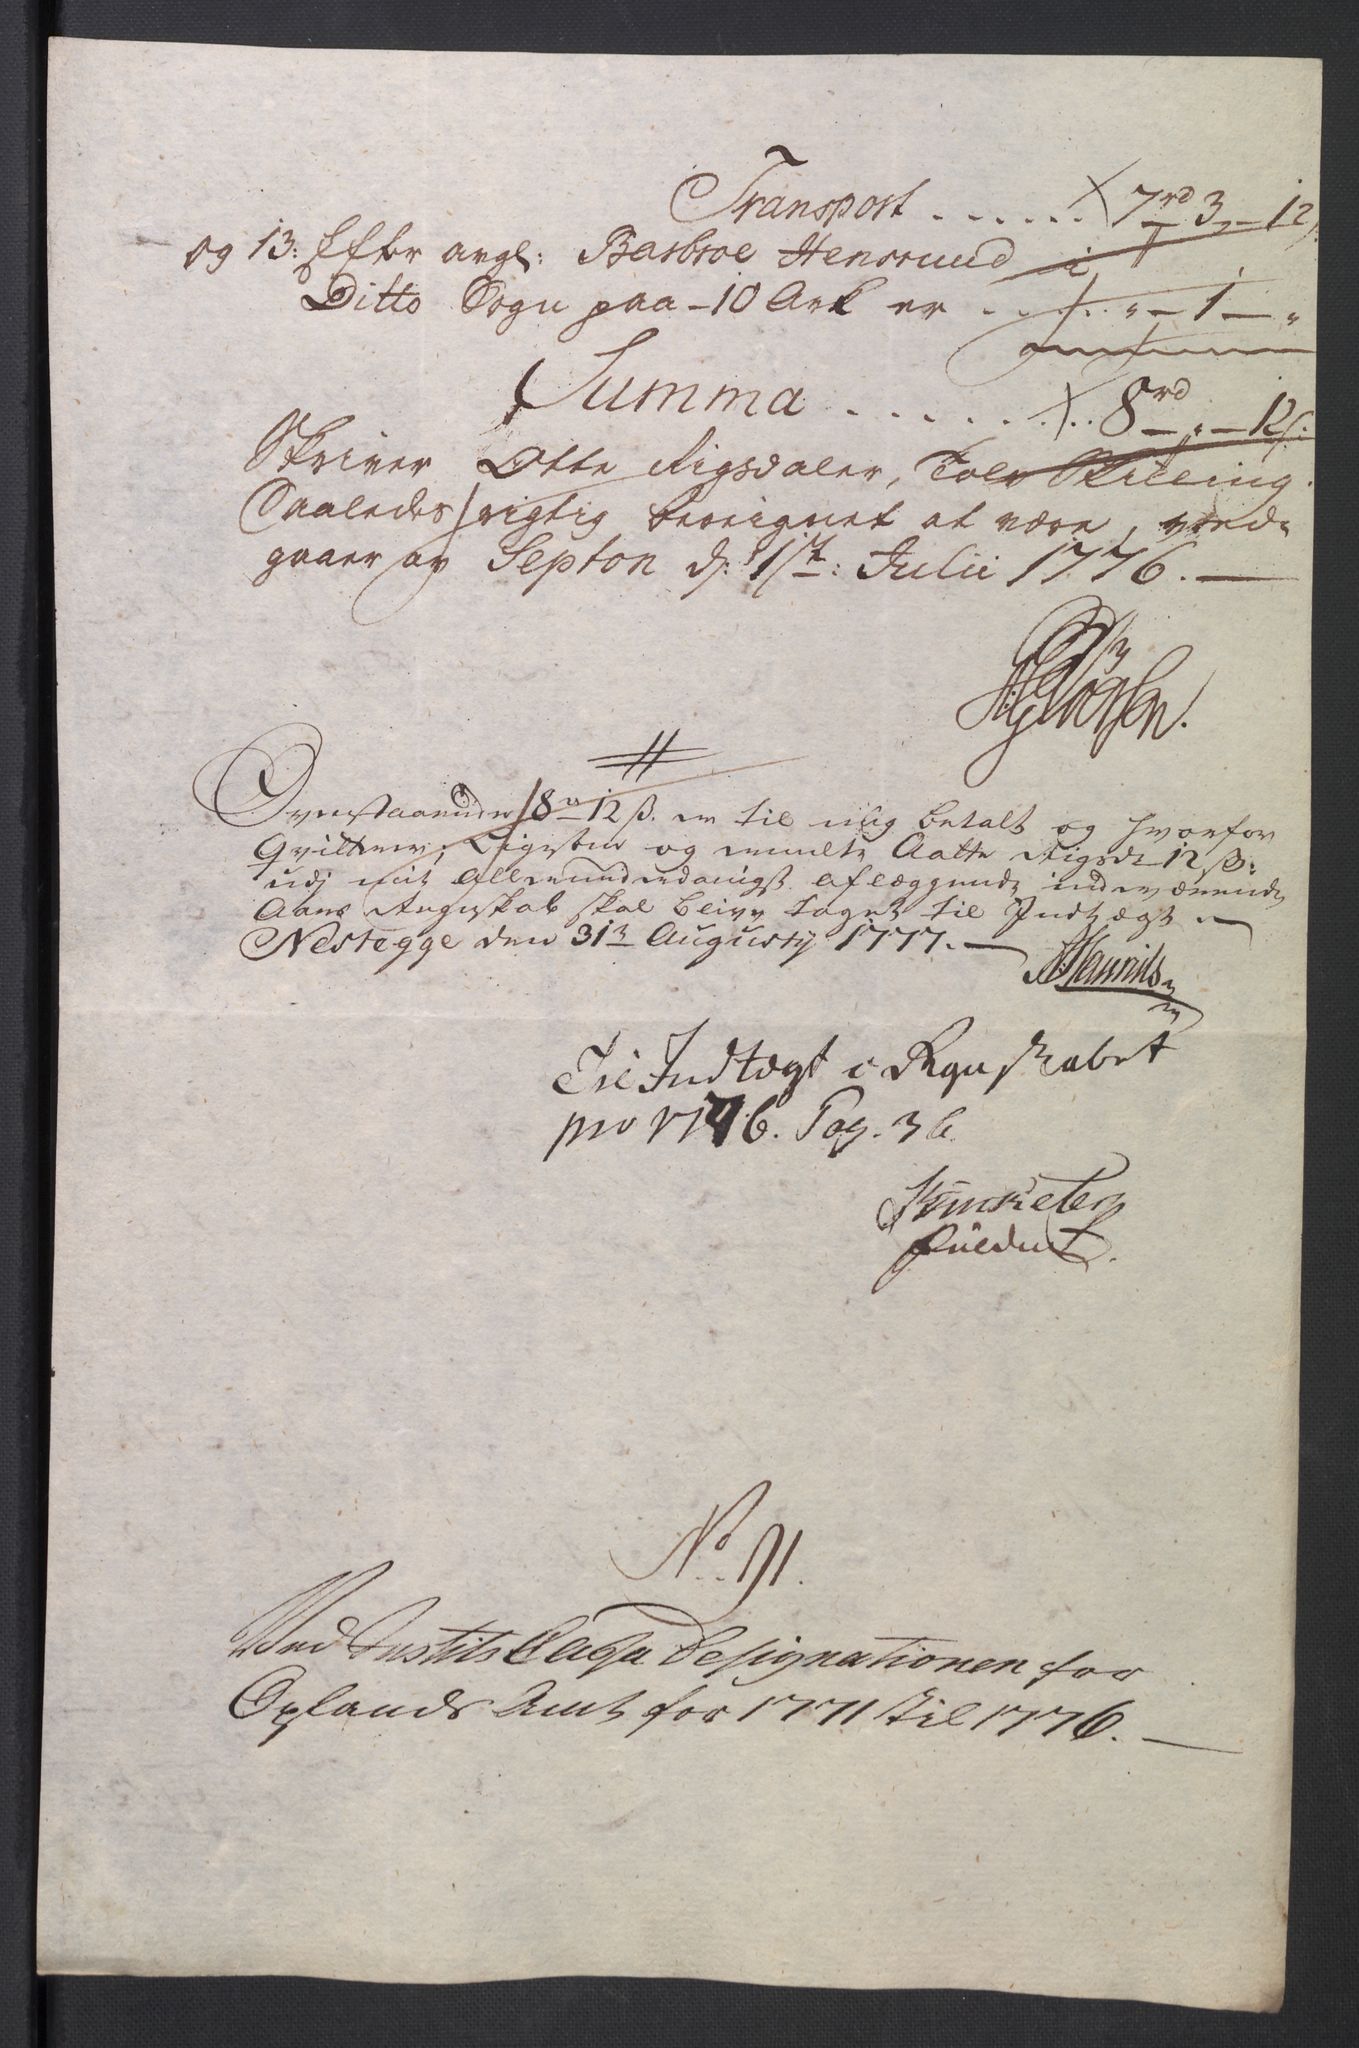 Transport . . . . . . 7 rd 3 „ – 12 s:
og 13: Efter avgl: Barbroe Hensrund i
Ditto Sogn paa – 10 Ark er . . . . . „ – 1 – „
Summa . . . . . . 8 rd – „ – 12 s:
Skriver Otte Rigsdaler, Tolv Skilling.
Saaledes rigtig bereignet at være, ved-
gaaer af Septon d: 1ste: Julii 1776. —
Ovenstaaende 8 rd 12 ß. er til mig betalt og hvorfor
Qvitterer, Ligesom og meldte Aatte Rigsd 12 ß:
udj mit allerunderdanigst aflæggende indeværende
Aars Regnskab skal blive taget til Indtægt
Nestegge den 31te Augusty 1777. —
Til Indtægt i Regnskabet
pro 1776. Pag. 36.
No. 91.
Ved Justits Cassa Designationen for
Oplands Amt for 1771 til 1776. —